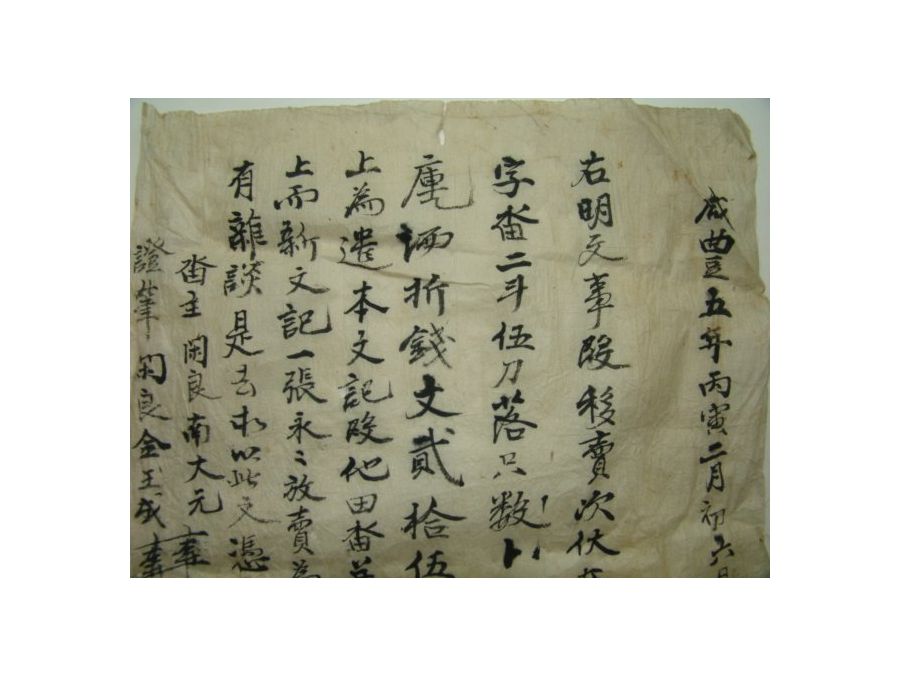 咸豊五年丙寅二月初六
右明文事段移賣次伏
字畓二斗伍刀落只数卜
庫㢱折錢文貳拾伍
上為遣本文記段他田畓並
上而新文記一張永〻放賣為
有雜談是去木以此文憑
畓主閑良南大元
證筆閑良金玉成